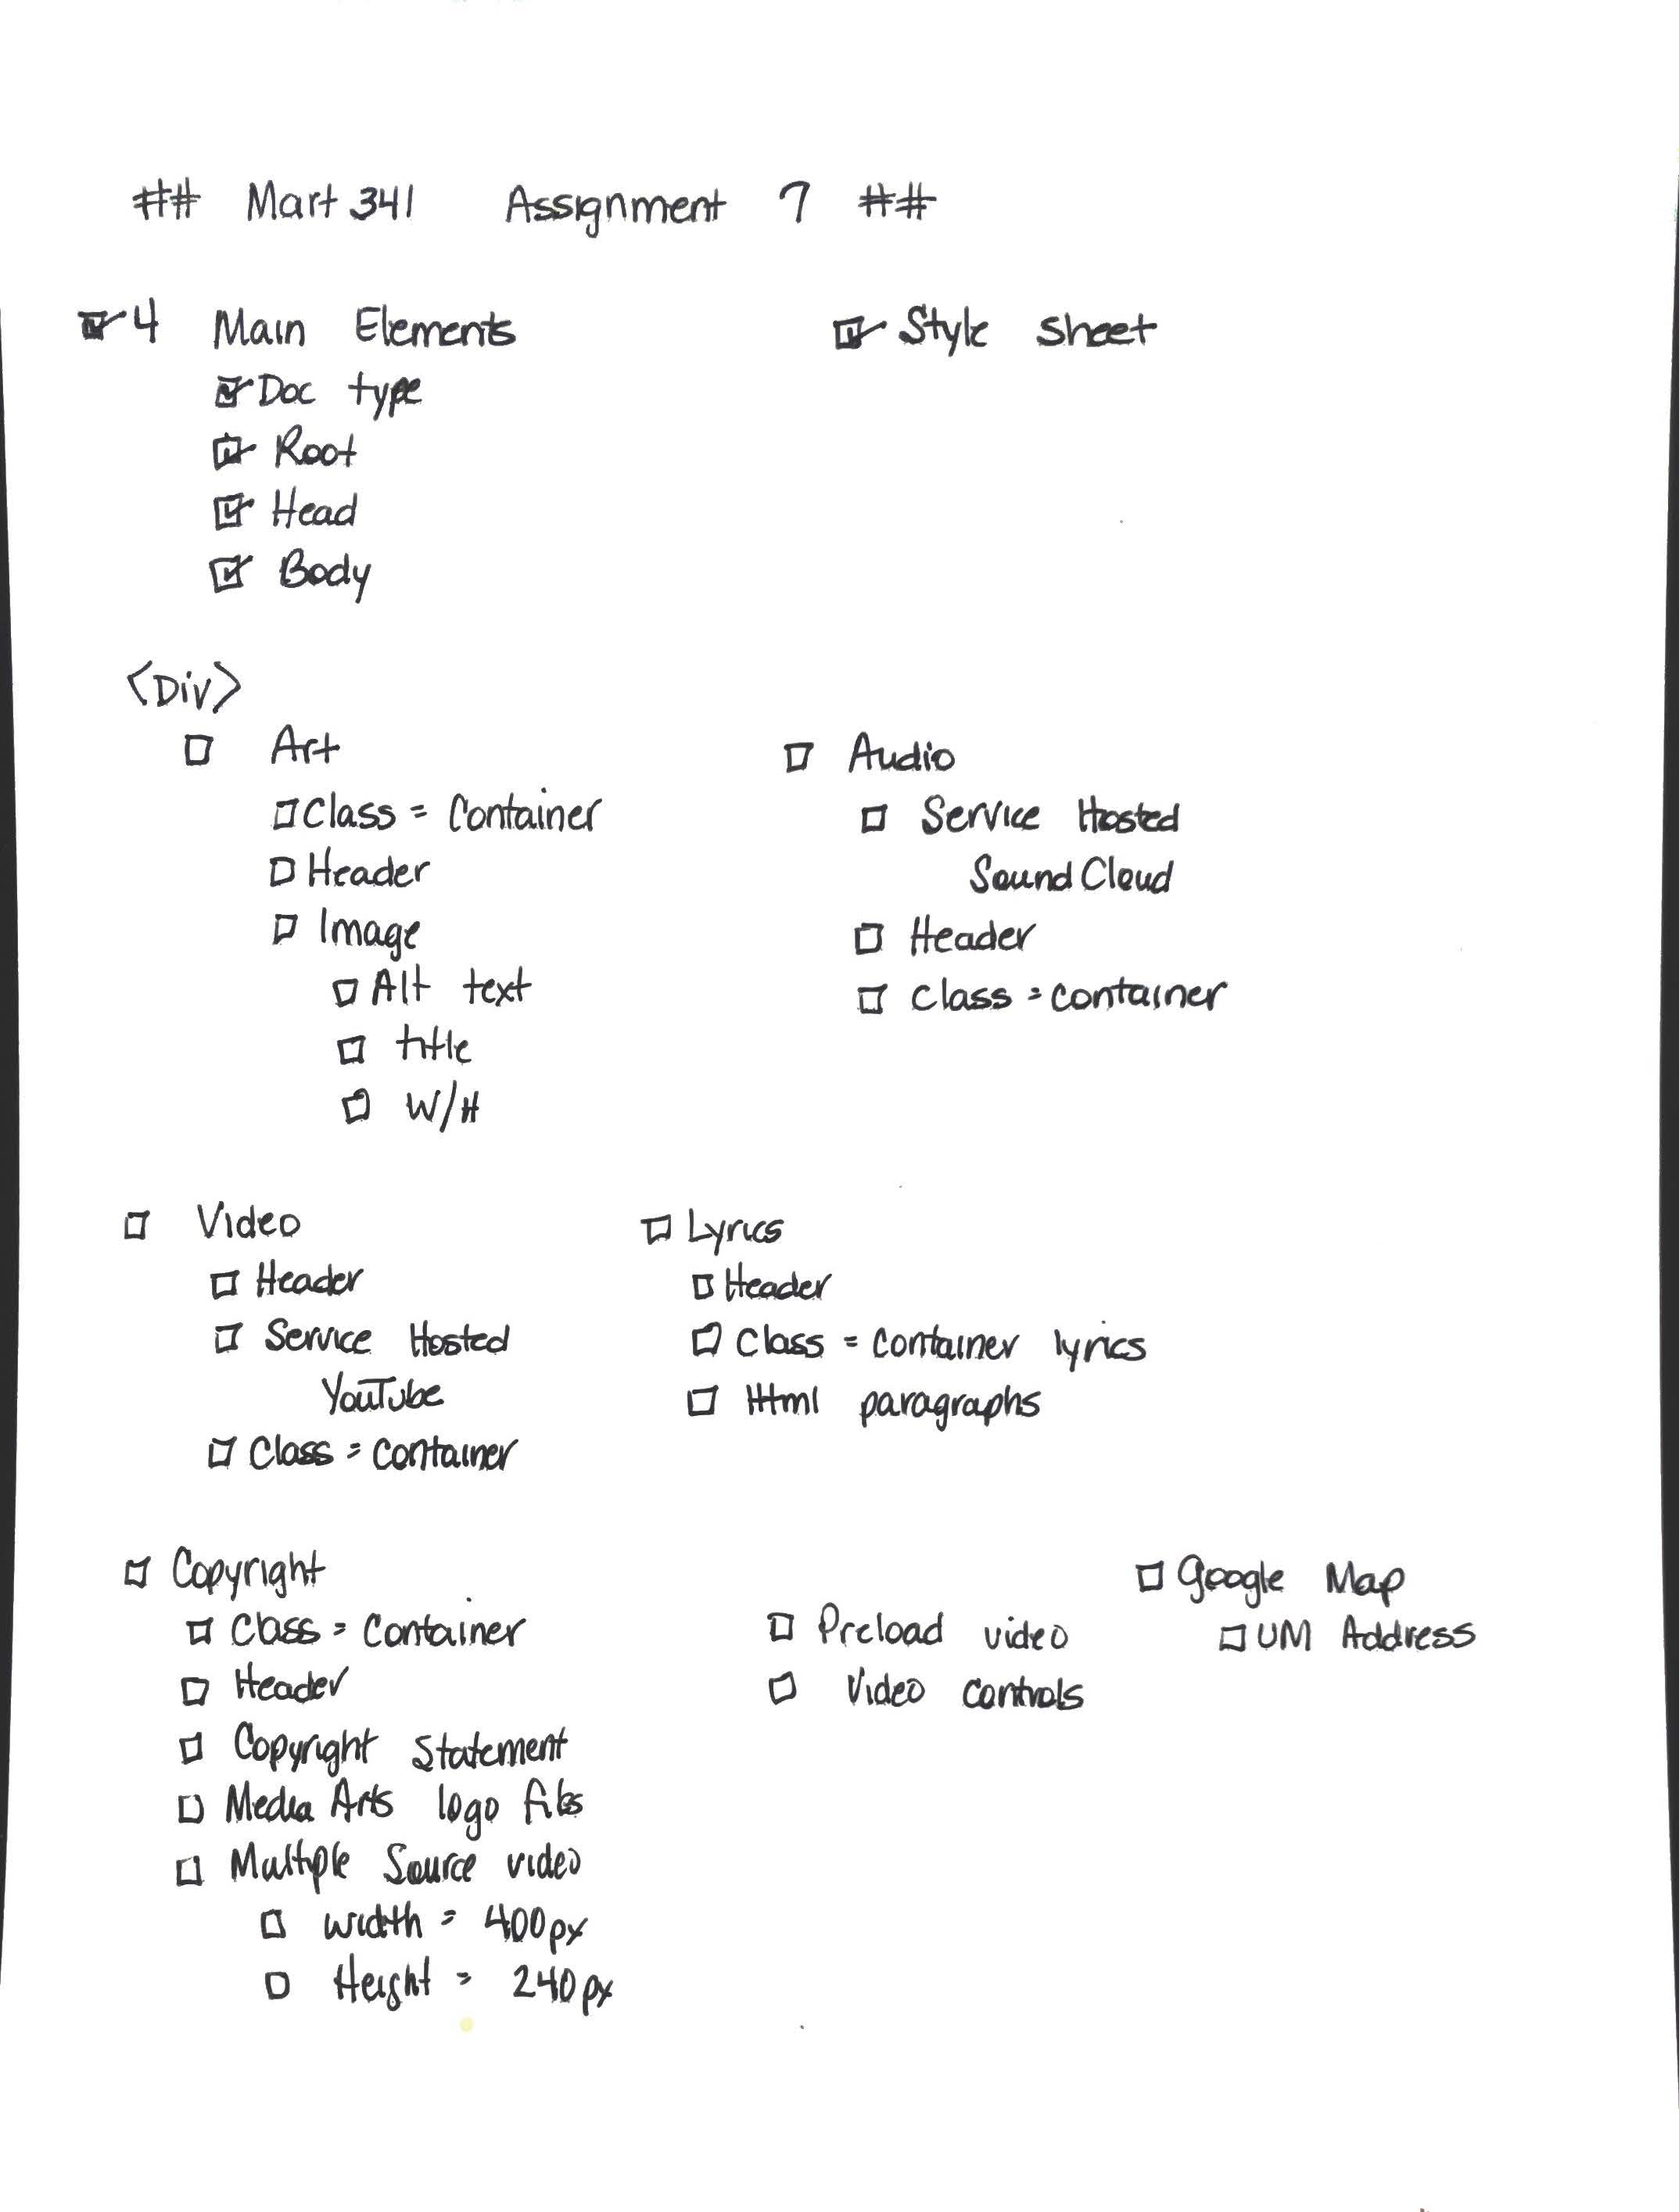 ## Mart 341 Assignment 7 ##
4 Main Elements
Doc type
Root
Head
Body
Style sheet
<Div>
Art
Class = Container
Header
Image
Alt text
title
W/H
Audio
Service Hosted
SoundCloud
Header
Class = container
Video
Header
Service Hosted
YouTube
Class = container
Lyrics
Header
Class = container lyrics
Html paragraphs
Copyright
Class = Container
Header
Copyright Statement
Media Arts logo files
Multiple Source video
width = 400px
Height = 240px
Preload video
Video controls
Google Map
UM Address